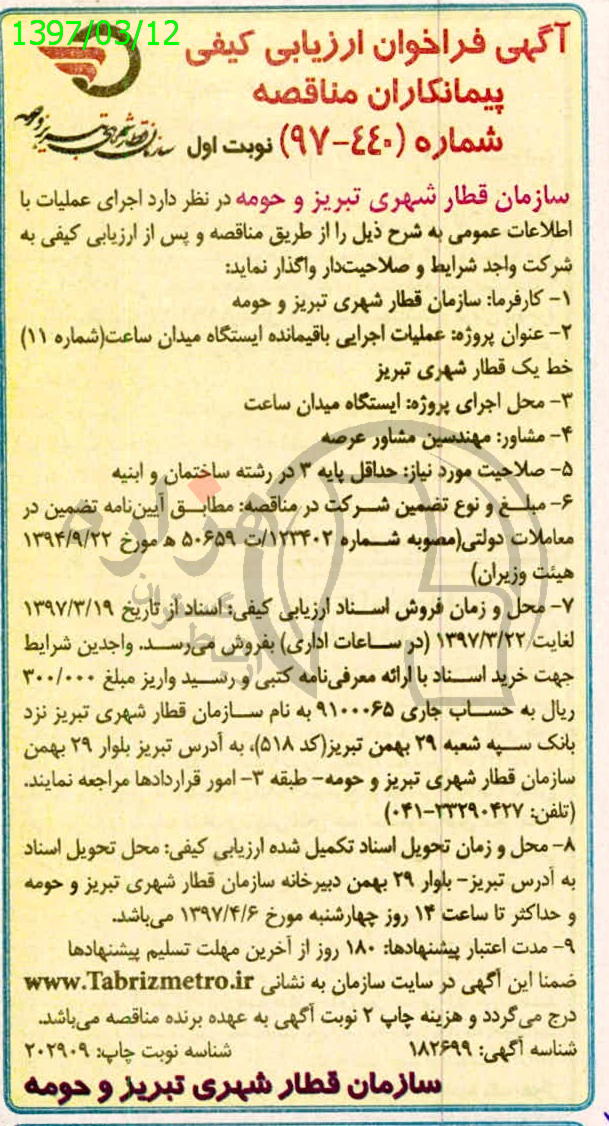 1397/03/12
آگهی فراخوان ارزیابی کیفی
پیمانکاران مناقصه
شماره (۴۴۰-۹۷) نوبت اول
سازمان قطار شهری تبریز و حومه
سازمان قطار شهری تبریز و حومه در نظر دارد اجرای عملیات با
اطلاعات عمومی به شرح ذیل را از طریق مناقصه و پس از ارزیابی کیفی به
شرکت واجد شرایط و صلاحیت‌دار واگذار نماید:
۱- کارفرما: سازمان قطار شهری تبریز و حومه
۲- عنوان پروژه: عملیات اجرایی باقیمانده ایستگاه میدان ساعت(شماره ۱۱)
خط یک قطار شهری تبریز
۳- محل اجرای پروژه: ایستگاه میدان ساعت
۴- مشاور: مهندسین مشاور عرصه
۵- صلاحیت مورد نیاز: حداقل پایه ۳ در رشته ساختمان و ابنیه
۶- مبلغ و نوع تضمین شرکت در مناقصه: مطابق آیین‌نامه تضمین در
معاملات دولتی(مصوبه شماره ۱۲۳۴۰۲/ت ۵۰۶۵۹ ه مورخ ۱۳۹۴/۹/۲۲
هیئت وزیران)
۷- محل و زمان فروش اسناد ارزیابی کیفی: اسناد از تاریخ ۱۳۹۷/۳/۱۹
لغایت ۱۳۹۷/۳/۲۲ (در ساعات اداری) بفروش می‌رسد. واجدین شرایط
جهت خرید اسناد با ارائه معرفی‌نامه کتبی و رسید واریز مبلغ ۳۰۰/۰۰۰
ریال به حساب جاری ۹۱۰۰۰۶۵ به نام سازمان قطار شهری تبریز نزد
بانک سپه شعبه ۲۹ بهمن تبریز(کد ۵۱۸)، به آدرس تبریز بلوار ۲۹ بهمن
سازمان قطار شهری تبریز و حومه- طبقه ۳- امور قراردادها مراجعه نمایند.
(تلفن: ۳۳۲۹۰۴۲۷-۰۴۱)
۸- محل و زمان تحویل اسناد تکمیل شده ارزیابی کیفی: محل تحویل اسناد
به آدرس تبریز- بلوار ۲۹ بهمن دبیرخانه سازمان قطار شهری تبریز و حومه
و حداکثر تا ساعت ۱۴ روز چهارشنبه مورخ ۱۳۹۷/۴/۶ می‌باشد.
۹- مدت اعتبار پیشنهادها: ۱۸۰ روز از آخرین مهلت تسلیم پیشنهادها
ضمنا این آگهی در سایت سازمان به نشانی www.Tabrizmetro.ir
درج می‌گردد و هزینه چاپ ۲ نوبت آگهی به عهده برنده مناقصه می‌باشد.
شناسه آگهی: ۱۸۲۶۹۹ شناسه نوبت چاپ: ۲۰۲۹۰۹
سازمان قطار شهری تبریز و حومه
هزاره